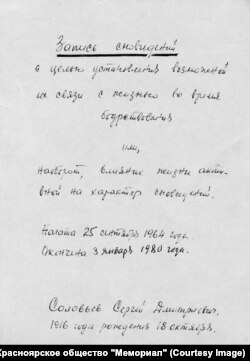 Запись сновидений
с целью установления возможной
их связи с жизнью во время
бодрствования
или,
наоборот, влияние жизни актив-
ной на характер сновидений.
Начата 25 сентября 1964 года.
Окончена 3 января 1980 года.
Соловьев Сергей Дмитриевич,
1916 года рождения 18 октября.
Красноярское общество "Мемориал" (Courtesy Image)